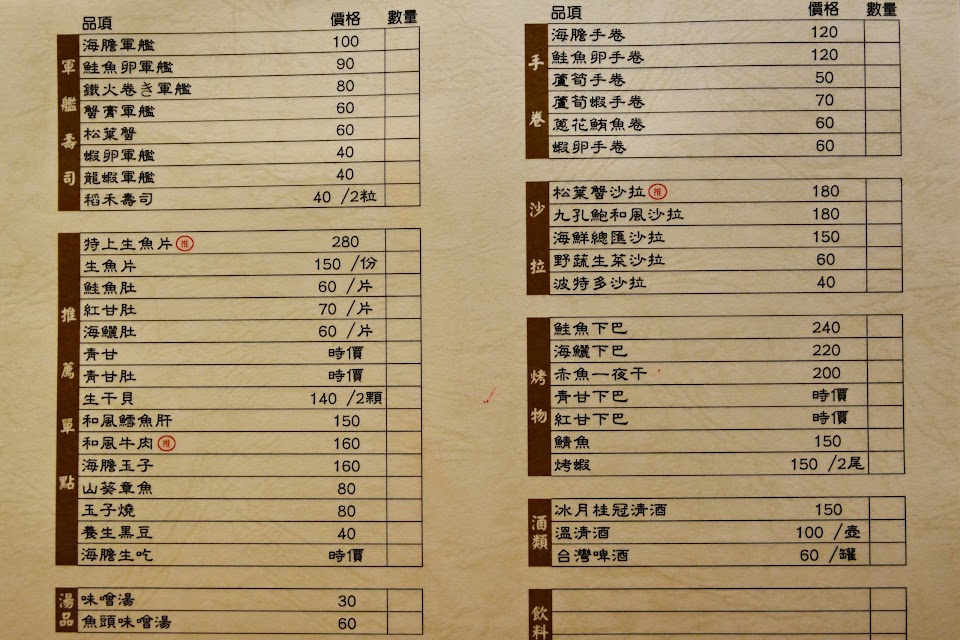 品項 價格 數量
軍艦壽司
海膽軍艦 100
鮭魚卵軍艦 90
鐵火卷き軍艦 80
蟹膏軍艦 60
松葉蟹 60
蝦卵軍艦 40
龍蝦軍艦 40
稻禾壽司 40 /2粒
推薦單點
特上生魚片 推 280
生魚片 150 /份
鮭魚肚 60 /片
紅甘肚 70 /片
海鱺肚 60 /片
青甘 時價
青甘肚 時價
生干貝 140 /2顆
和風鱈魚肝 150
和風牛肉 推 160
海膽玉子 160
山葵章魚 80
玉子燒 80
養生黑豆 40
海膽生吃 時價
湯品
味噌湯 30
魚頭味噌湯 60
品項 價格 數量
手卷
海膽手卷 120
鮭魚卵手卷 120
蘆筍手卷 50
蘆筍蝦手卷 70
蔥花鮪魚卷 60
蝦卵手卷 60
沙拉
松葉蟹沙拉 推 180
九孔鮑和風沙拉 180
海鮮總匯沙拉 150
野蔬生菜沙拉 60
波特多沙拉 40
烤物
鮭魚下巴 240
海鱺下巴 220
赤魚一夜干 200
青甘下巴 時價
紅甘下巴 時價
鯖魚 150
烤蝦 150 /2尾
酒類
冰月桂冠清酒 150
溫清酒 100 /壺
台灣啤酒 60 /罐
飲料